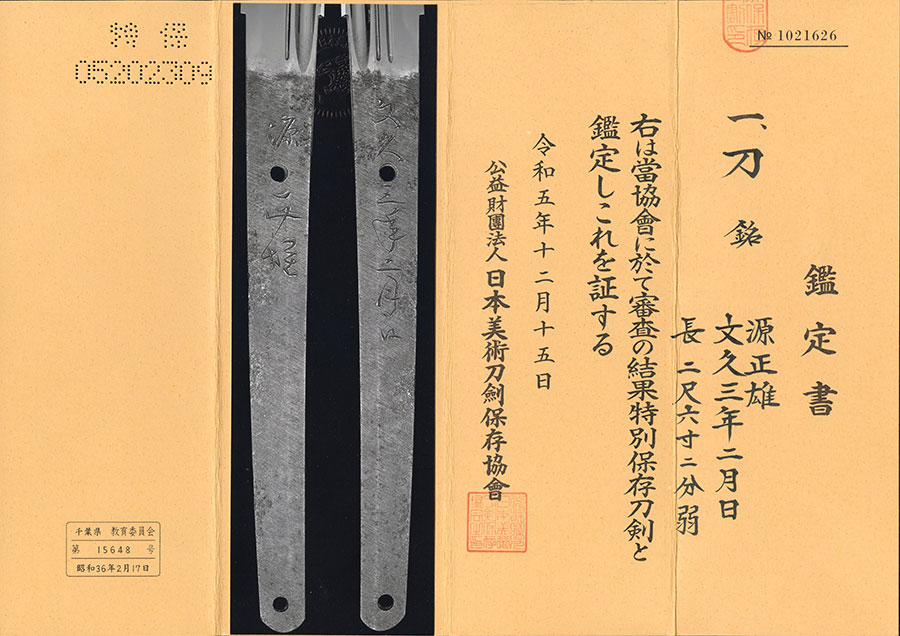 № 1021626
鑑定書
一、刀 銘
源正雄
文久三年二月日
長 二尺六寸二分弱
右は當協會に於て審査の結果特別保存刀剣と
鑑定しこれを証する
令和五年十二月十五日
公益財團法人日本美術刀劍保存協會
文久三年二月日
源正雄
特保
05202309
千葉県 教育委員会
第 15648 号
昭和36年2月17日